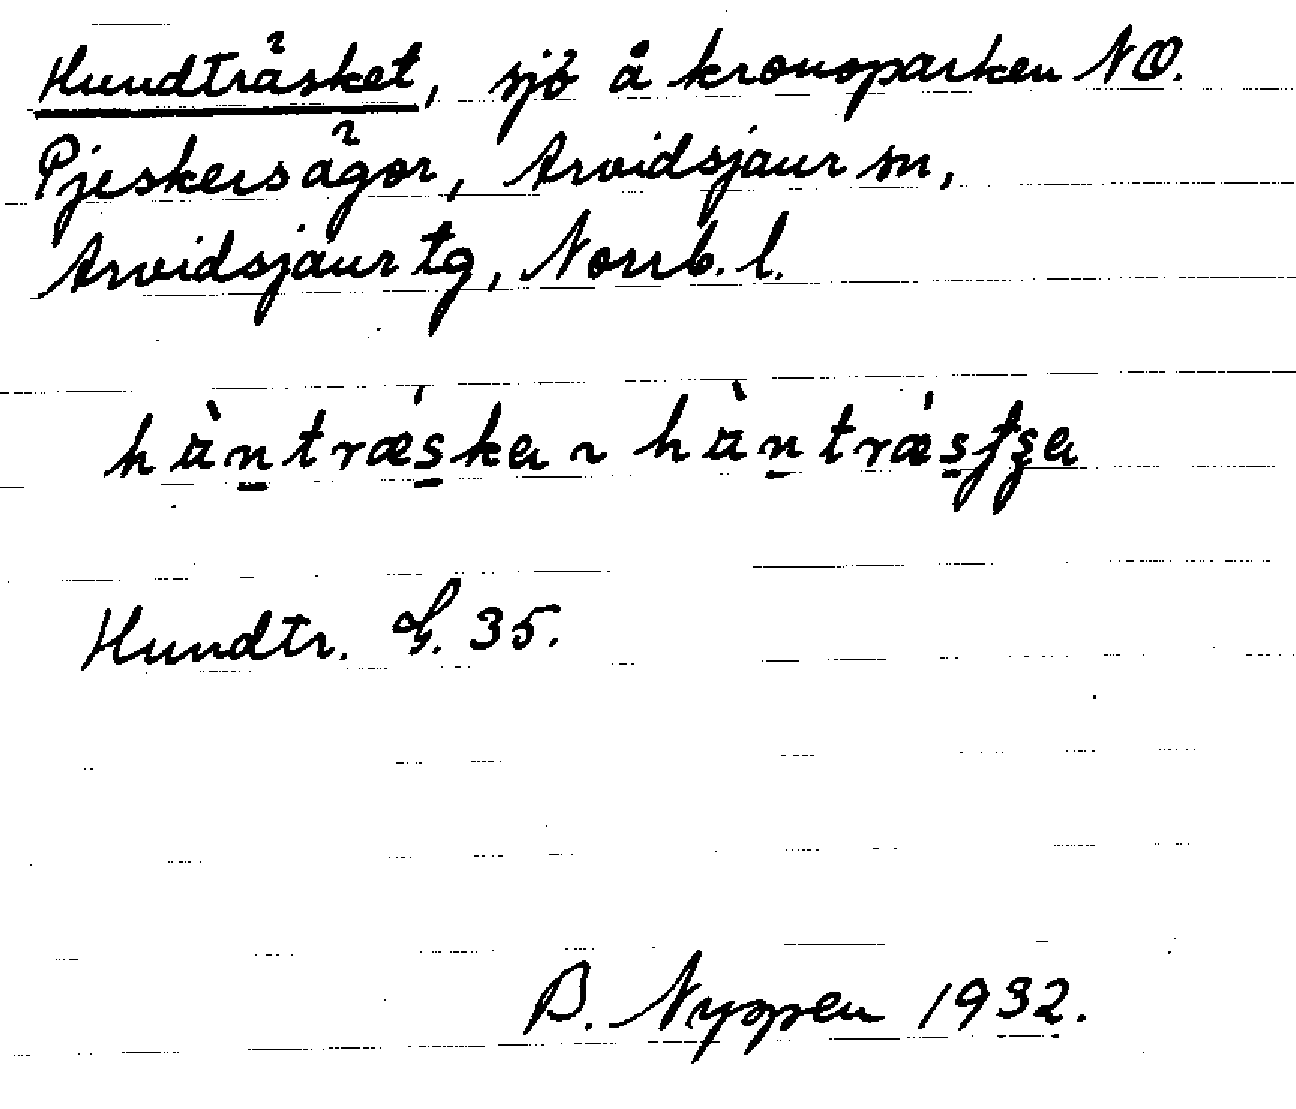 Hundträsket, sjö å kronoparken NO.
Pjeskersägor, Arvidsjaur sn,
Arvidsjaur tg, Norrb. l.
hùntrǽska ~ hùntrǽsʃʒa
Hundtr. G. 35.
B. Nyppen 1932.